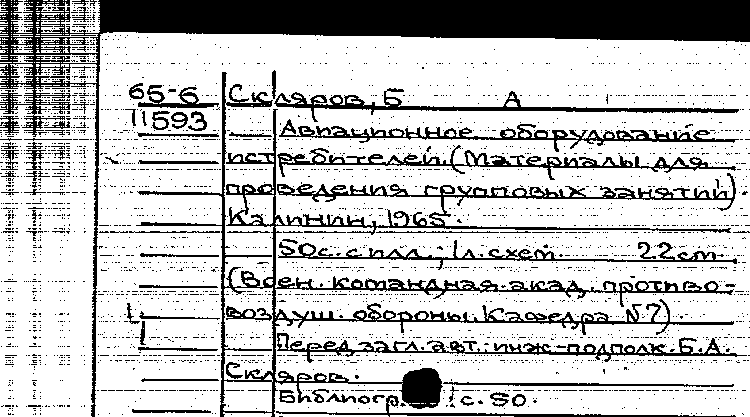 65-6 Скляров, Б А
11593 Авиационное оборудование
истребителей. (Материалы для
проведения групповых занятий).
Калинин, 1965.
50с. с илл.; 1л. схем. 22см.
(Воен. командная акад. противо-
воздуш. обороны. Кафедра №7).
Перед загл. авт.: инж.-подполк. Б.А.
Скляров.
Библиогр. с. 50.